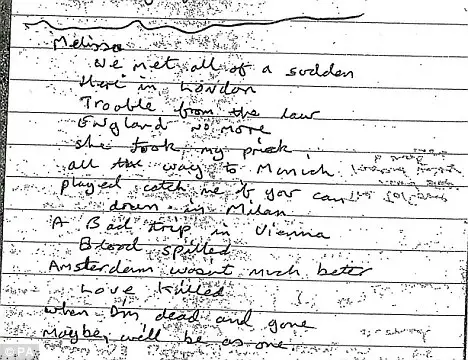 Melissa
We met all of a sudden
Here in London
Trouble from the law
England no more
She took my prick
all the way to Munich
played catch me if you can
down in Milan
A Bad trip in Vienna
Blood spilled
Amsterdam wasn't much better
Love killed
When I'm dead and gone
Maybe, we'll be as one
© PA